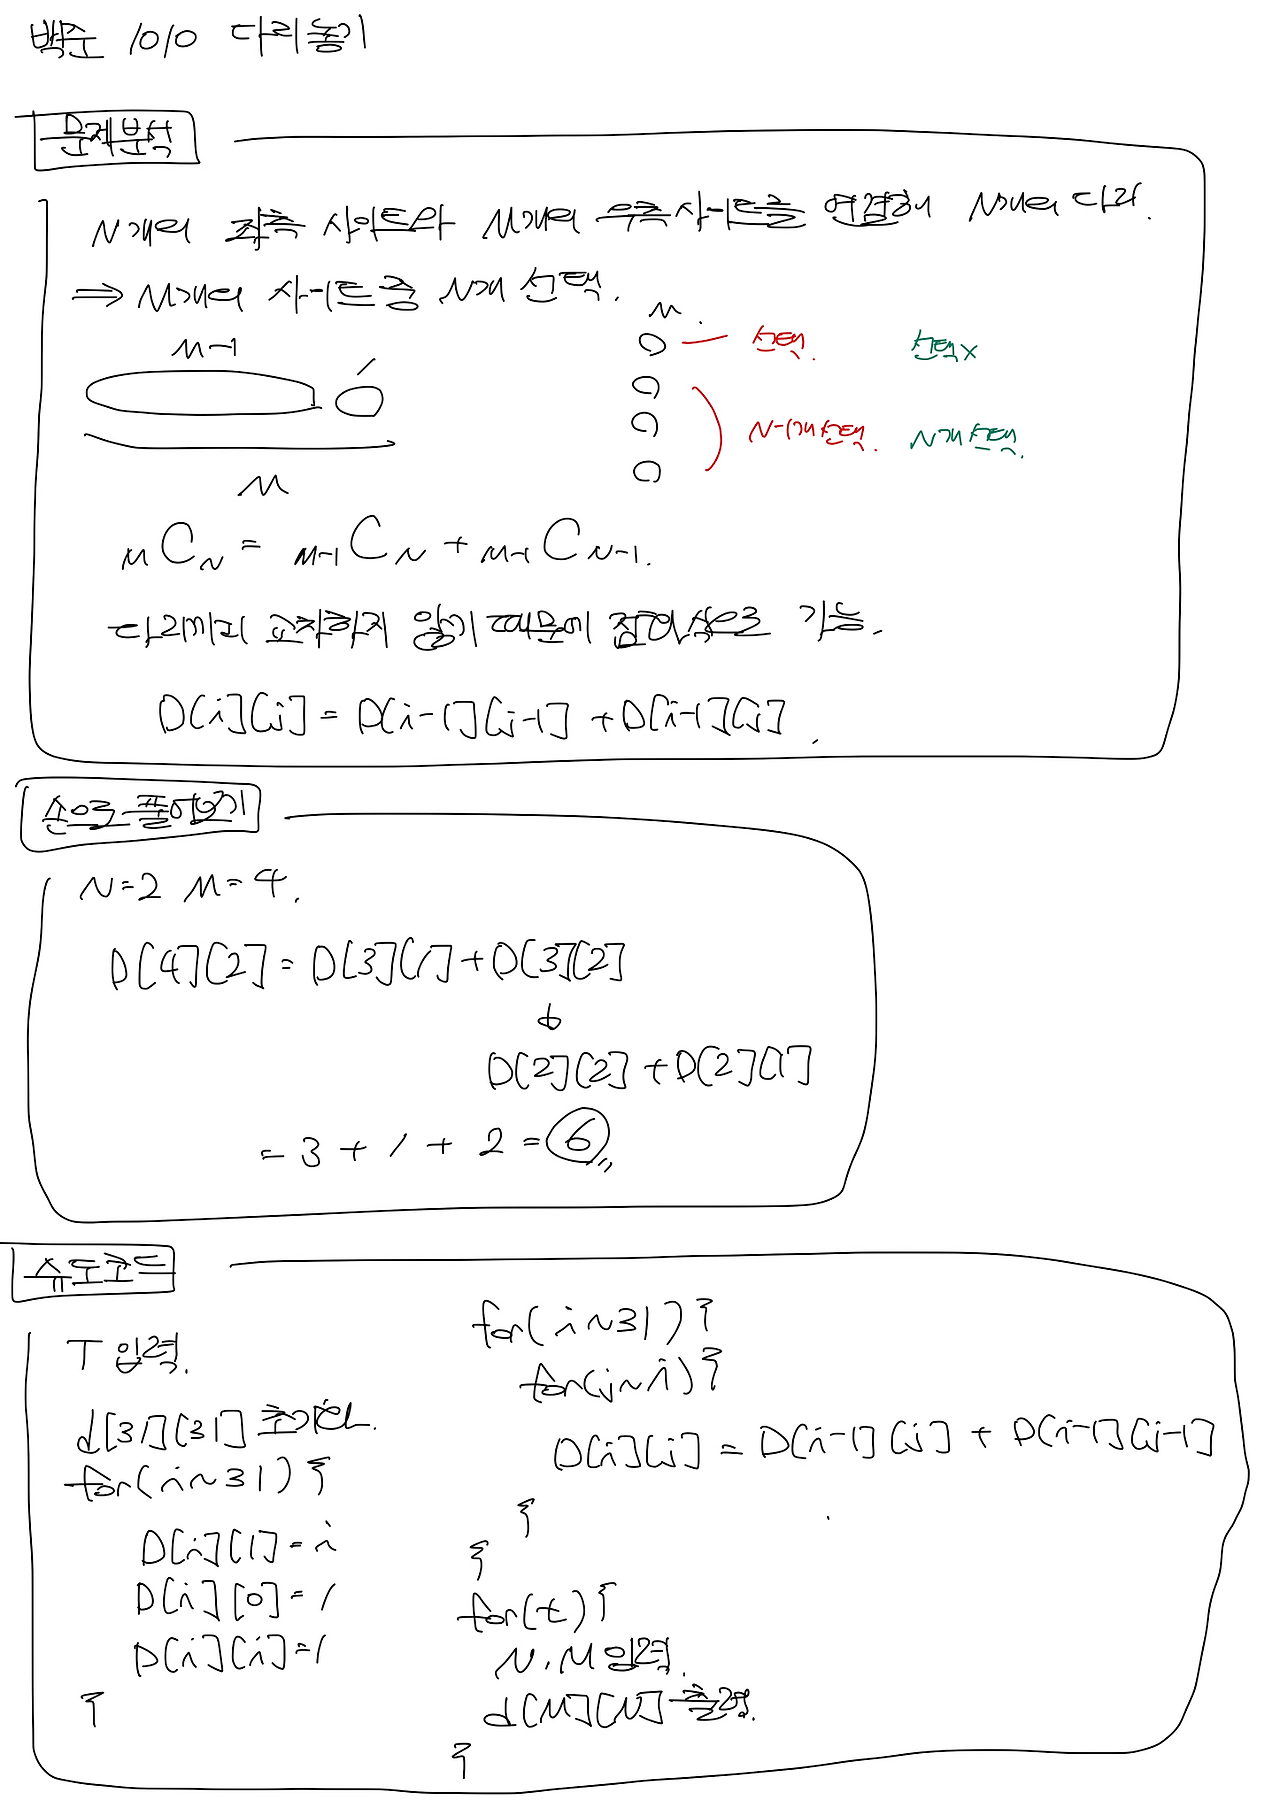 백준 1010 다리놓기
문제분석
N개의 좌측 사이트와 M개의 우측 사이트를 연결해 N개의 다리.
⇒ M개의 사이트 중 N개 선택.
M-1
M
M.
선택. 선택x
N-1개 선택. N개 선택.
M C N = M-1 C N + M-1 C N-1.
다리끼리 교차하지 않기 때문에 점화식으로 가능.
D[i][j] = D[i-1][j-1] + D[i-1][j].
손으로 풀어보기
N=2 M=4.
D[4][2] = D[3][1] + D[3][2]
↓
D[2][2] + D[2][1]
= 3 + 1 + 2 = 6
슈도코드
T 입력.
d[31][31] 초기화.
for(i~31) {
D[i][1] = i
D[i][0] = 1
D[i][i] = 1
}
for(i~31) {
for(j~i) {
D[i][j] = D[i-1][j] + D[i-1][j-1]
}
}
for(t) {
N, M 입력.
d[M][N] 출력.
}